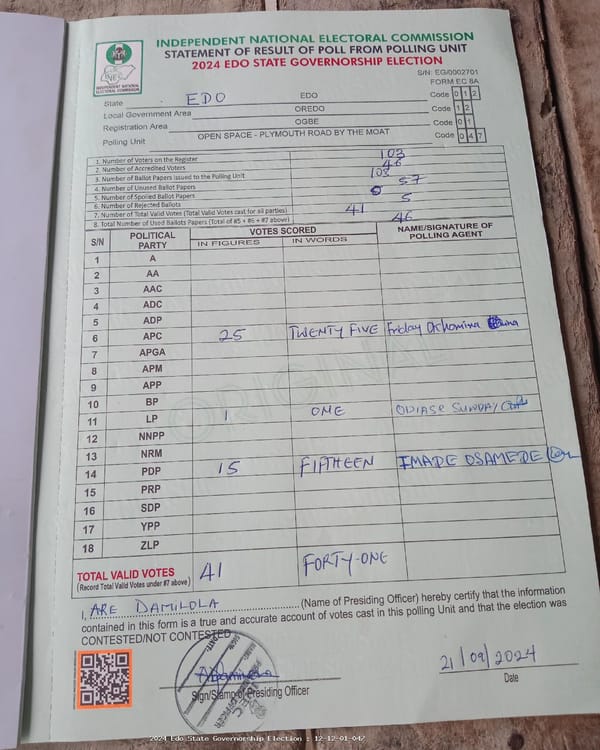 INDEPENDENT NATIONAL ELECTORAL COMMISSION
STATEMENT OF RESULT OF POLL FROM POLLING UNIT
2024 EDO STATE GOVERNORSHIP ELECTION
INDEPENDENT NATIONAL ELECTORAL COMMISSION
S/N: EG/0002701
FORM EC 8A
State EDO EDO Code 012
Local Government Area OREDO Code 12
Registration Area OGBE Code 01
Polling Unit OPEN SPACE - PLYMOUTH ROAD BY THE MOAT Code 047
1. Number of Voters on the Register 103
2. Number of Accredited Voters 46
3. Number of Ballot Papers Issued to the Polling Unit 103
4. Number of Unused Ballot Papers 57
5. Number of Spoiled Ballot Papers 0
6. Number of Rejected Ballots 5
7. Number of Total Valid Votes (Total Valid Votes cast for all parties) 41
8. Total Number of Used Ballots Papers (Total of #5 + #6 + #7 above) 46
S/N POLITICAL PARTY VOTES SCORED NAME/SIGNATURE OF POLLING AGENT
IN FIGURES IN WORDS
1 A
2 AA
3 AAC
4 ADC
5 ADP
6 APC 25 TWENTY FIVE Friday Ochomina
7 APGA
8 APM
9 APP
10 BP
11 LP 1 ONE ODIASE SUNDAY
12 NNPP
13 NRM
14 PDP 15 FIFTHEEN IMADE OSAMEDE
15 PRP
16 SDP
17 YPP
18 ZLP
ORIGINAL
TOTAL VALID VOTES 41 FORTY-ONE
(Record Total Valid Votes under #7 above)
I, ARE DAMILOLA (Name of Presiding Officer) hereby certify that the information
contained in this form is a true and accurate account of votes cast in this polling Unit and that the election was
CONTESTED/NOT CONTESTED
21/09/2024
Sign/Stamp of Presiding Officer Date
2024 Edo State Governorship Election : 12-12-01-047